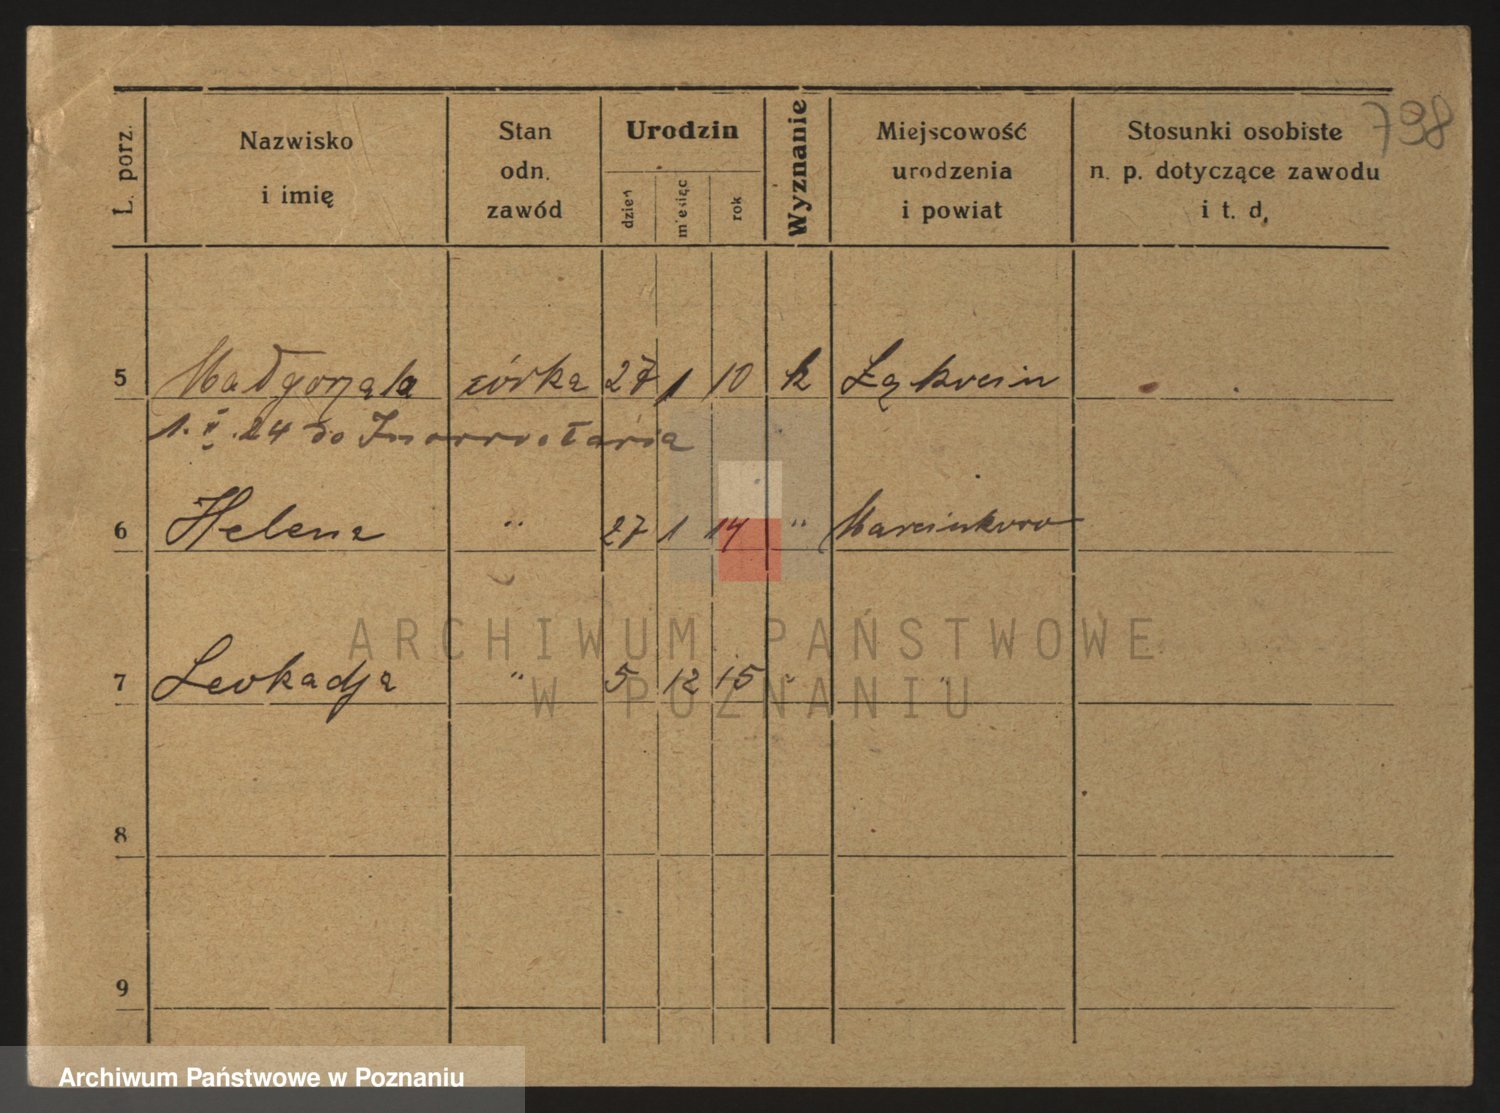 798
L. porz.
Nazwisko i imię
Stan odn. zawód
Urodzin
dzień
miesiąc
rok
Wyznanie
Miejscowość urodzenia i powiat
Stosunki osobiste n. p. dotyczące zawodu i t. d.
5 Małgorzata córka 27 1 10 k
1. V. 24 do
6 Helena " 27 1 14 " Marcinkowo
7 Leokadja " 5 12 15 " "
8
9
ARCHIWUM PAŃSTWOWE
W POZNANIU
Archiwum Państwowe w Poznaniu